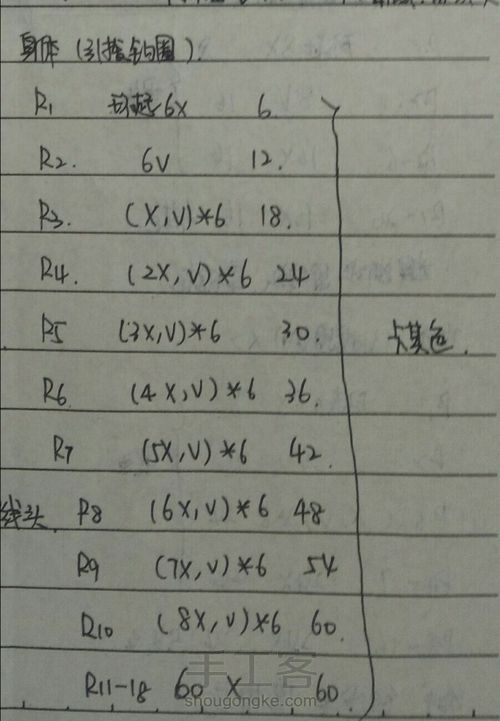 身体(引拔钩圈).
R1 环起6X 6
R2. 6V 12.
R3. (X,V)*6 18.
R4. (2X,V)*6 24
R5 (3X,V)*6 30. 卡其色.
R6 (4X,V)*6 36.
R7 (5X,V)*6 42
线头 R8 (6X,V)*6 48
R9 (7X,V)*6 54
R10 (8X,V)*6 60.
R11-18 60 X 60
手工客
shougongke.com